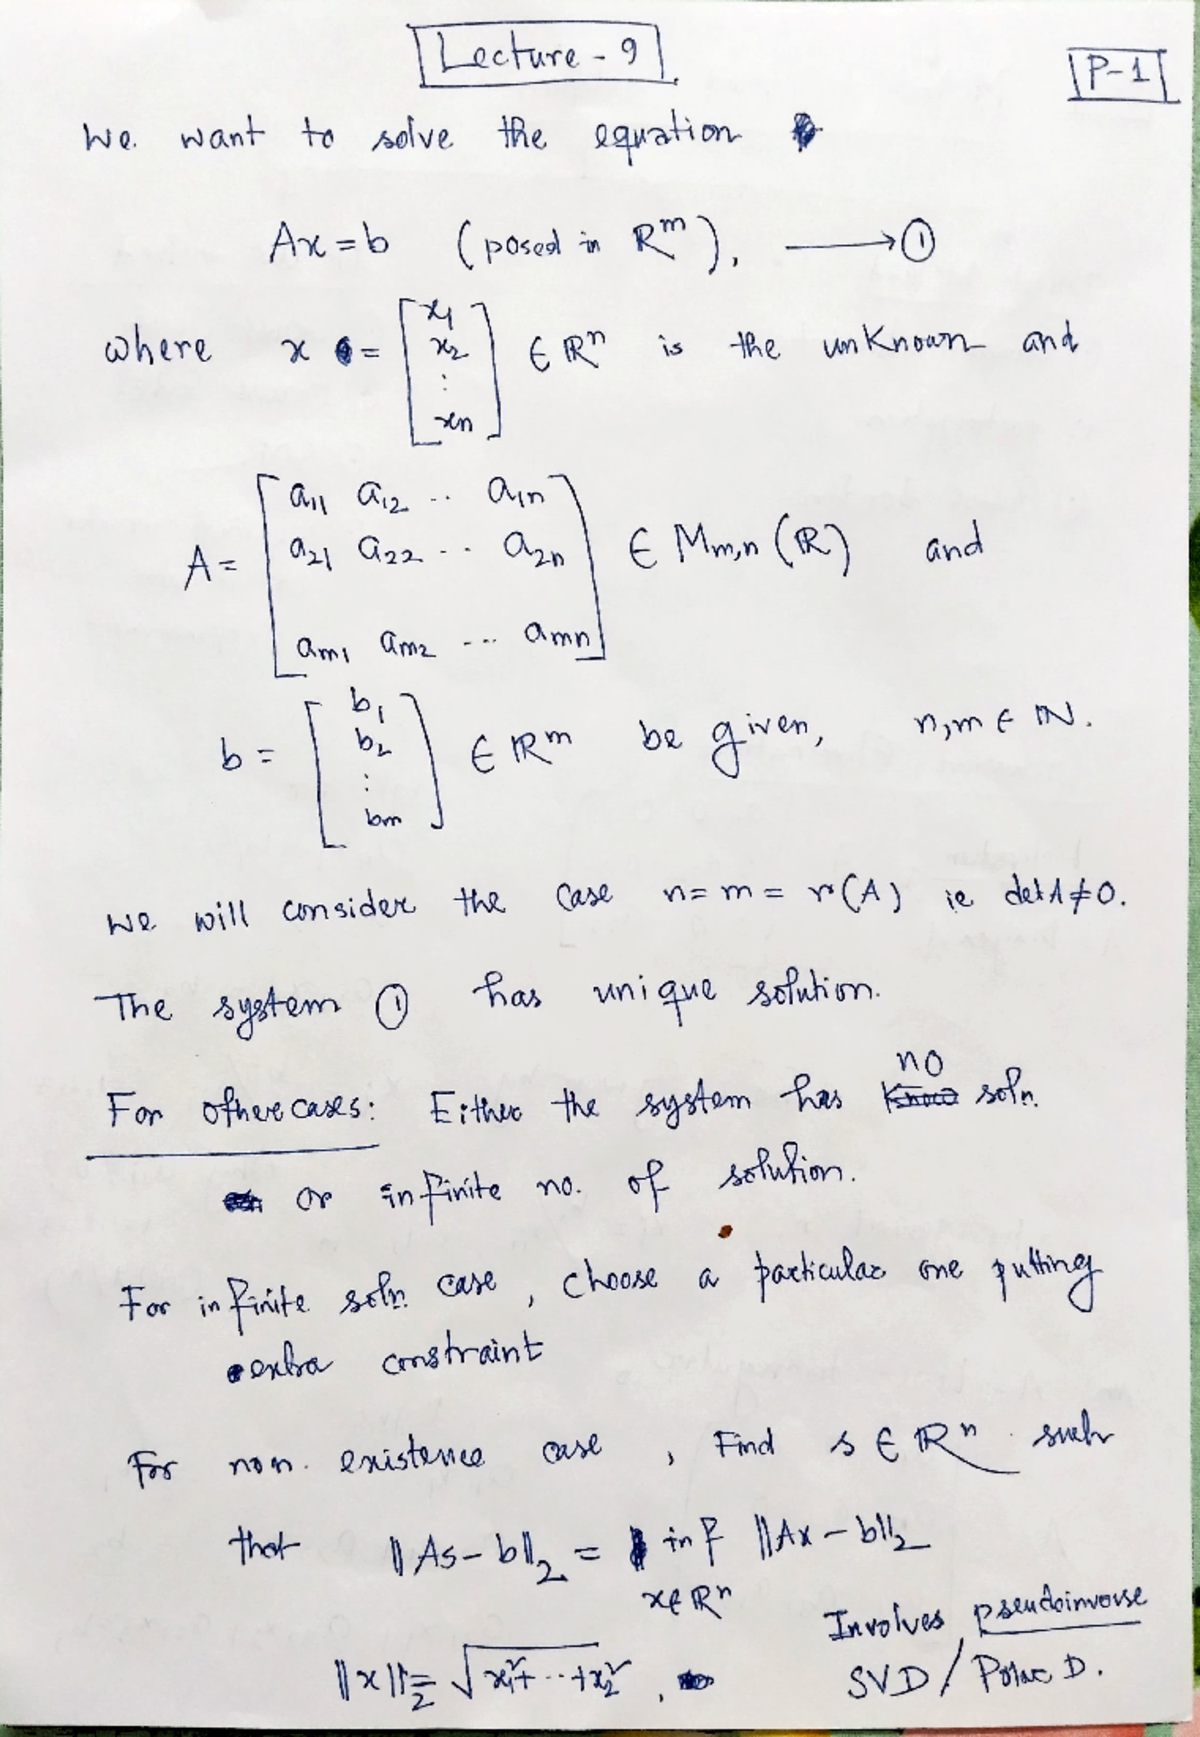 Lecture - 9
P-1
We want to solve the equation
Ax = b (posed in ℝ^m), ⟶ ①
where x = [x₁ x₂ ⋮ xn] ∈ ℝ^n is the unknown and
A = [a₁₁ a₁₂ .. a₁n
a₂₁ a₂₂ ... a₂n
am₁ am₂ ... amn] ∈ Mm,n (ℝ) and
b = [b₁ b₂ ⋮ bm] ∈ ℝ^m be given, n,m ∈ ℕ.
We will consider the case n = m = r(A) ie det A ≠ 0.
The system ① has unique solution.
For other cases: Either the system has no soln.
or infinite no. of solution.
For infinite soln. case, choose a particular one putting
extra constraint
For non. existence case, Find s ∈ ℝ^n such
that ‖As - b‖₂ = inf ‖Ax - b‖₂
x∈ℝ^n
Involves pseudoinverse
‖x‖₂ = √x₁² + ... + x₂² , SVD / Polar D.